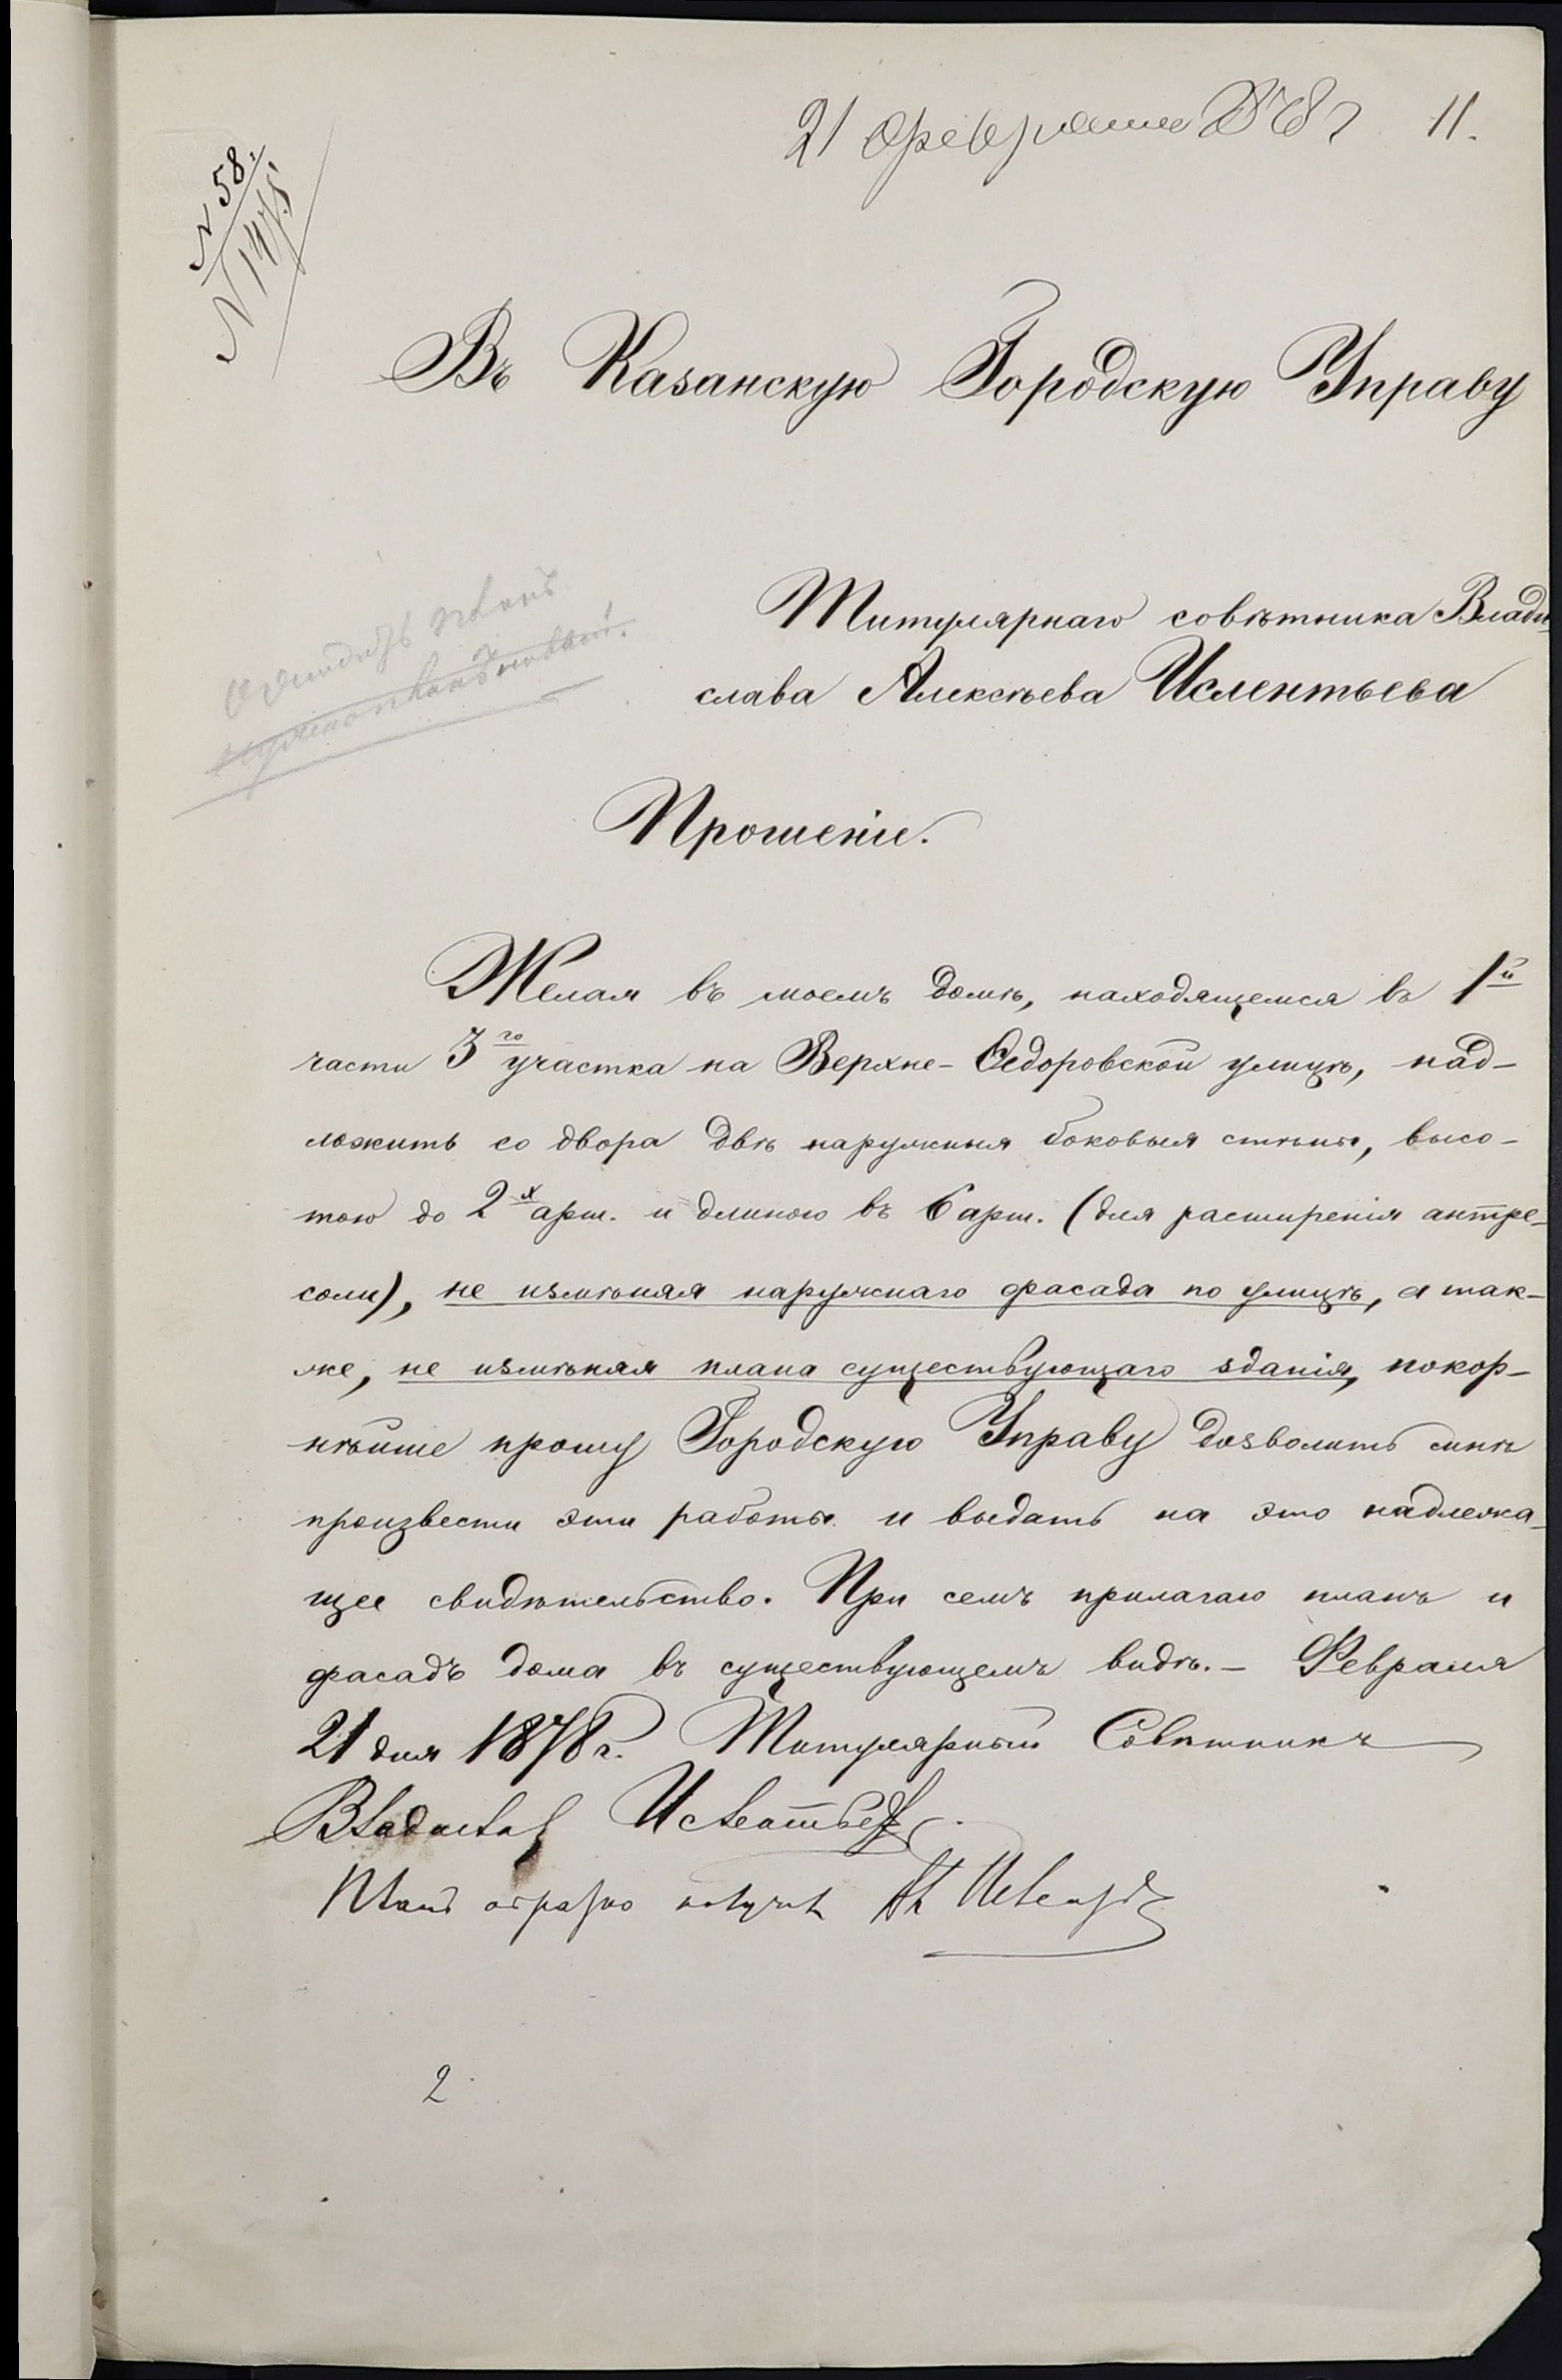 21 февраля 1878 г 11.
N 58.
N 1475
Въ Казанскую Городскую Управу
Титулярнаго совѣтника Влади-
слава Алексѣева Ислентьева
Прошеніе.
Желая въ моемъ домѣ, находящемся въ 1й
части 3го участка на Верхне-Ѳедоровской улицѣ, над-
ложить со двора двѣ наружныя боковыя стѣны, высо-
тою до 2х арш. и длиною въ 6 арш. (для расширенія антре-
соли), не измѣняя наружнаго фасада по улицѣ, а так-
же, не измѣняя плана существующаго зданія, покор-
нѣйше прошу Городскую Управу дозволить мнѣ
произвести эти работы и выдать на это надлежа-
щее свидѣтельство. При семъ прилагаю планъ и
фасадъ дома въ существующемъ видѣ. — Февраля
21 дня 1878 г. Титулярный Совѣтникъ
Владиславъ Ислентьевъ.
Планъ обратно получилъ Вл Ислентьевъ
2